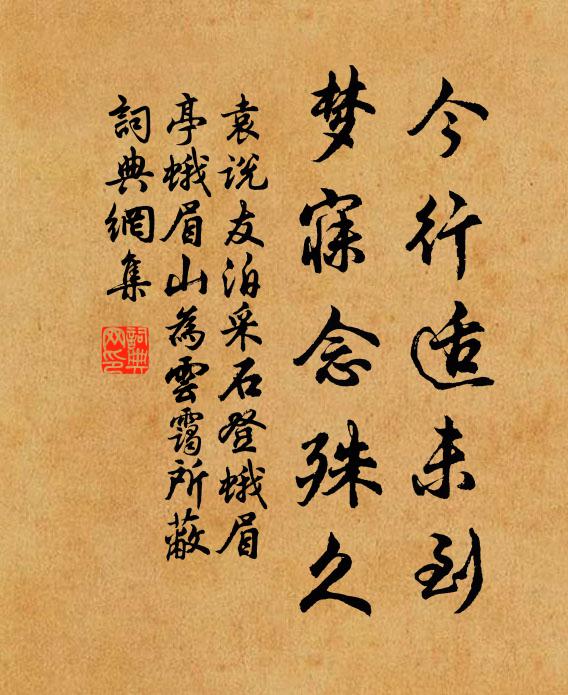 今行适未到
梦寐念殊久
袁说友泊采石登蛾眉
亭蛾眉山為雲霭所蔽
詞典網集
詞典网印